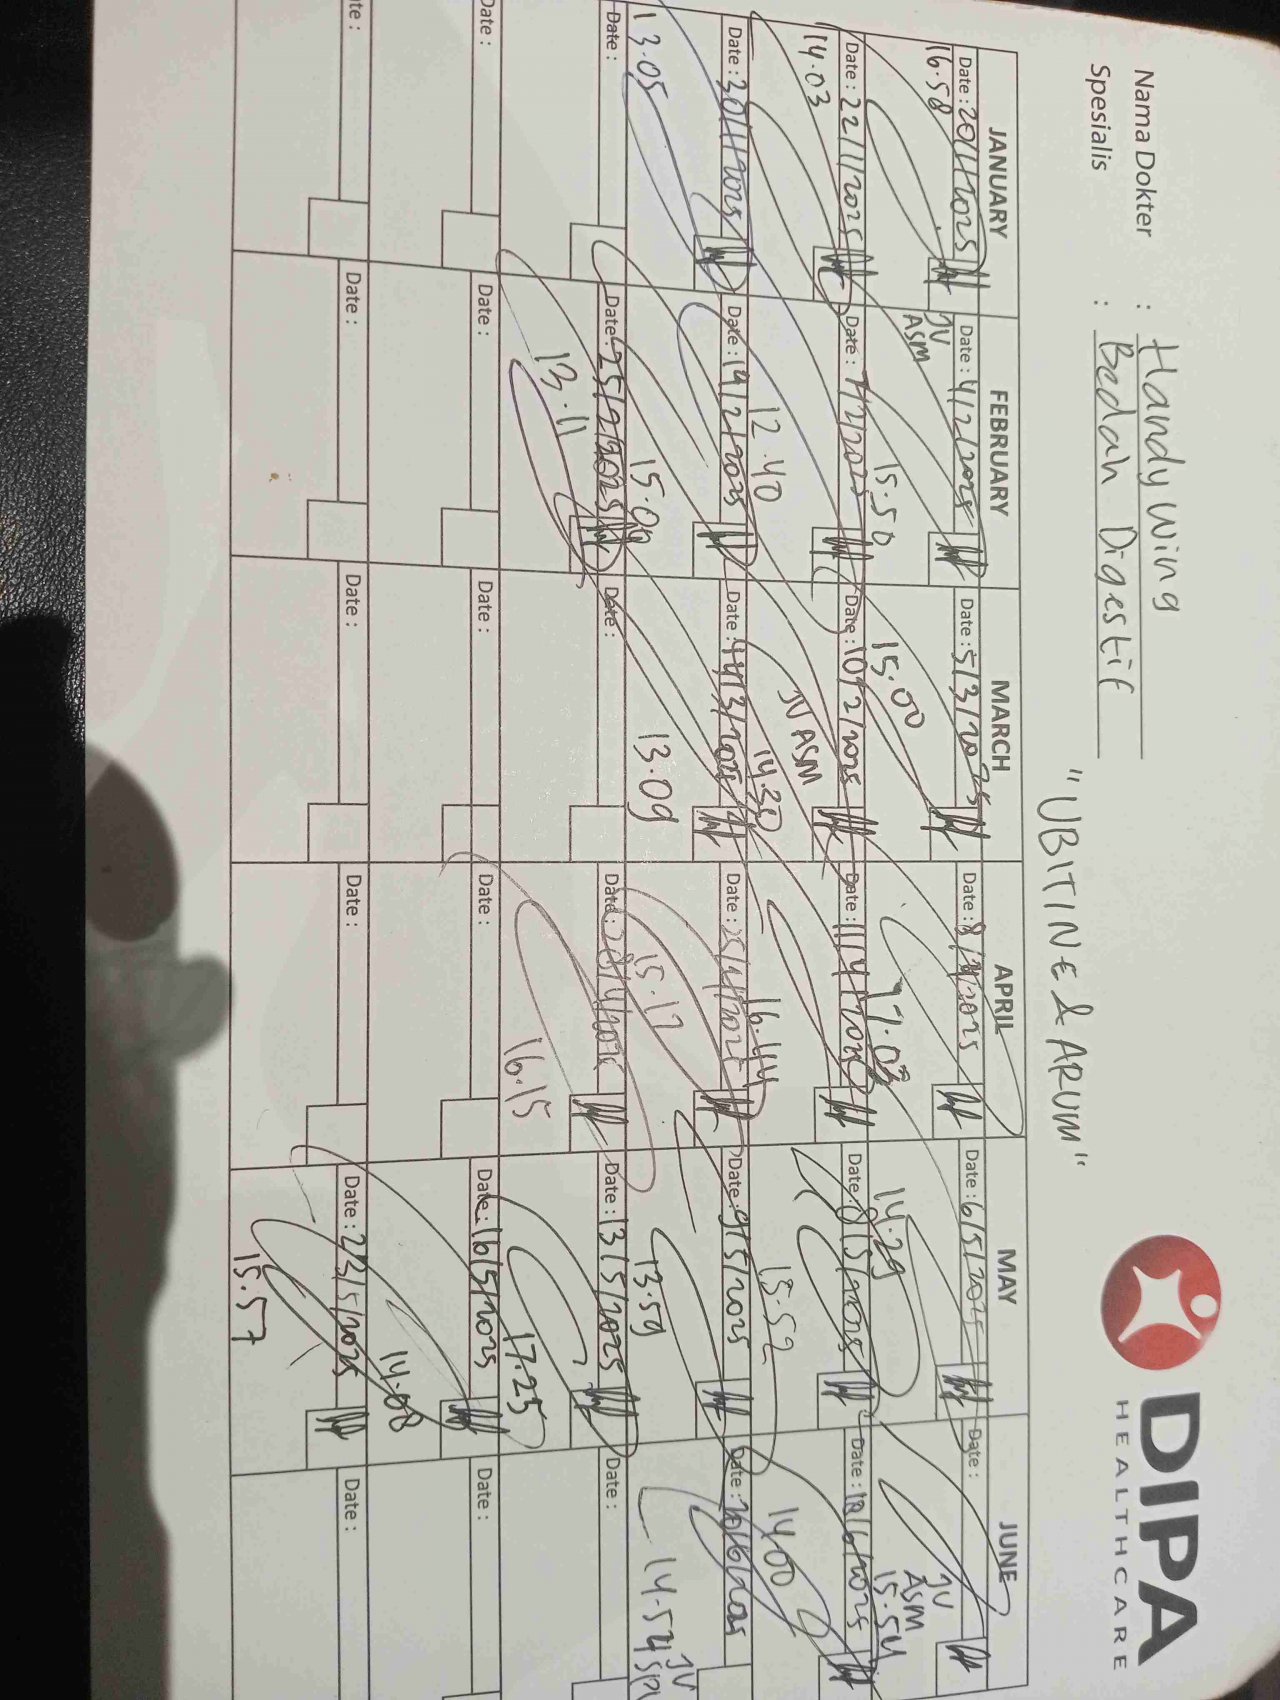 Nama Dokter : Handy Wing
Spesialis : Bedah Digestif
DIPA
HEALTHCARE
"UBITINE & ARUM"
JANUARY FEBRUARY MARCH APRIL MAY JUNE
Date: 20/1/2025 Date: 4/2/2025 Date: 5/3/2025 Date: 8/4/2025 Date: 6/5/2025 Date:
16.58 JV ASM 15.50 15.00 17.03 14.29 JV ASM 15.54
Date: 22/1/2025 Date: 7/2/2025 Date: 10/2/2025 Date: 11/4/2025 Date: 8/5/2025 Date: 10/6/2025
14.03 12.40 JV ASM 14.30 16.44 15.52 14.00
Date: 30/1/2025 Date: 19/2/2025 Date: /3/2025 Date: 25/4/2025 Date: 9/5/2025 Date: 20/6/2025
13.05 15.09 13.09 15.17 13.59 14.54 JV
Date: Date: 25/2/2025 Date: Date: 28/4/2025 Date: 13/5/2025 Date:
13.11 16.15 17.25
Date: Date: Date: Date: Date: 16/5/2025 Date:
14.08
Date: Date: Date: Date: Date: 23/5/2025 Date:
15.57